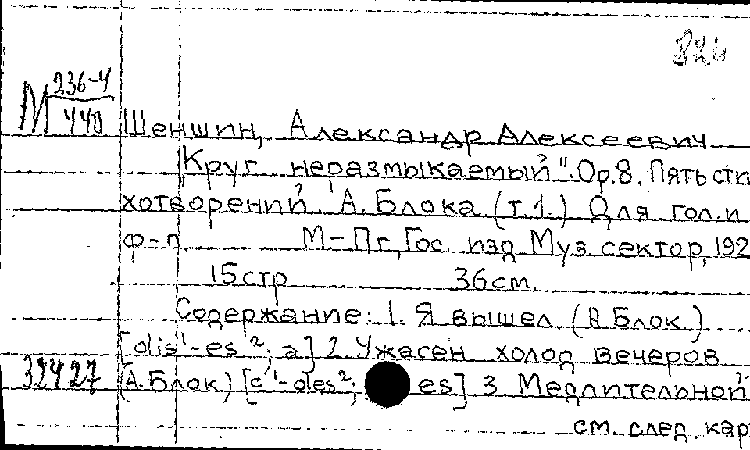 М 236-4
440
Шеншин, Александр Алексеевич
"Круг неразмыкаемый". Op. 8. Пять сти
хотворений А. Блока (т. 1.) Для гол. и
ф-п. М-Пг, Гос. изд. Муз. сектор, 192
15 стр 36 см.
Содержание: 1. Я вышел (А. Блок)
[dis¹-es²; a] 2. Ужасен холод вечеров
32427 (А. Блок) [c¹-des²; es] 3 Медлительной
см. след. кар